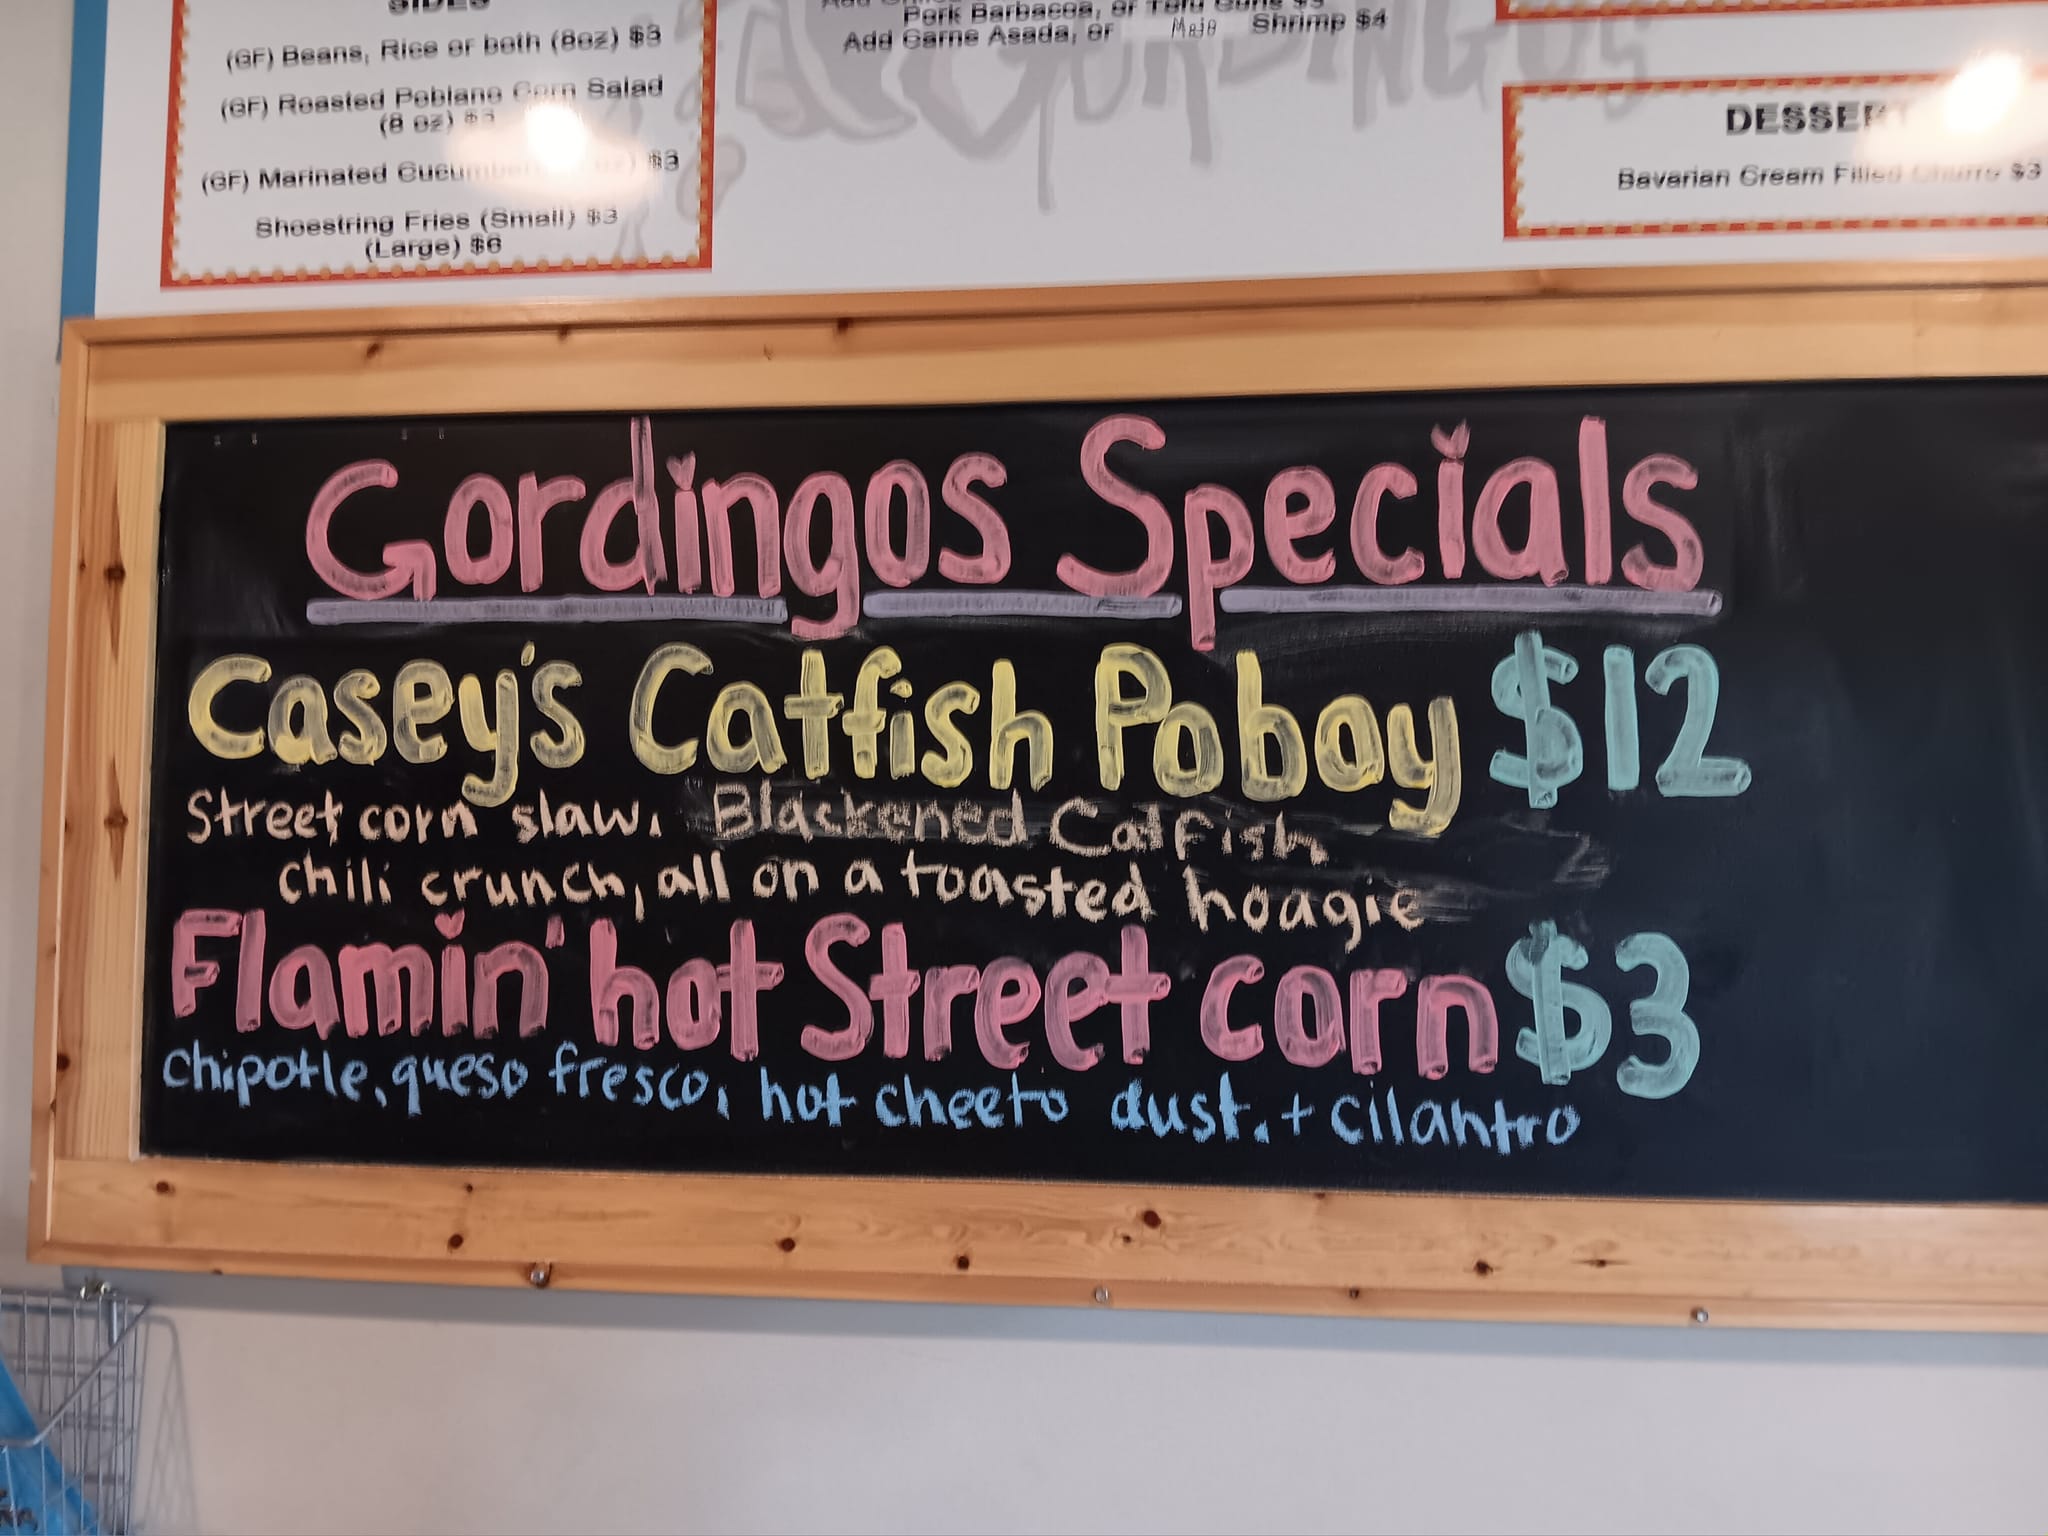 SIDES
(GF) Beans, Rice or both (8oz) $3
(GF) Roasted Poblano Corn Salad
(8 oz) $3
(GF) Marinated Cucumber $3
Shoestring Fries (Small) $3
(Large) $6
Pork Barbacoa, or Tofu $3
Add Carne Asada, or Mojo Shrimp $4
GORDINGOS
DESSERT
Bavarian Cream Filled Churro $3
Gordingos Specials
Casey's Catfish Poboy $12
Street corn slaw, Blackened Catfish
chili crunch, all on a toasted hoagie
Flamin' hot Street corn $3
chipotle, queso fresco, hot cheeto dust, + cilantro